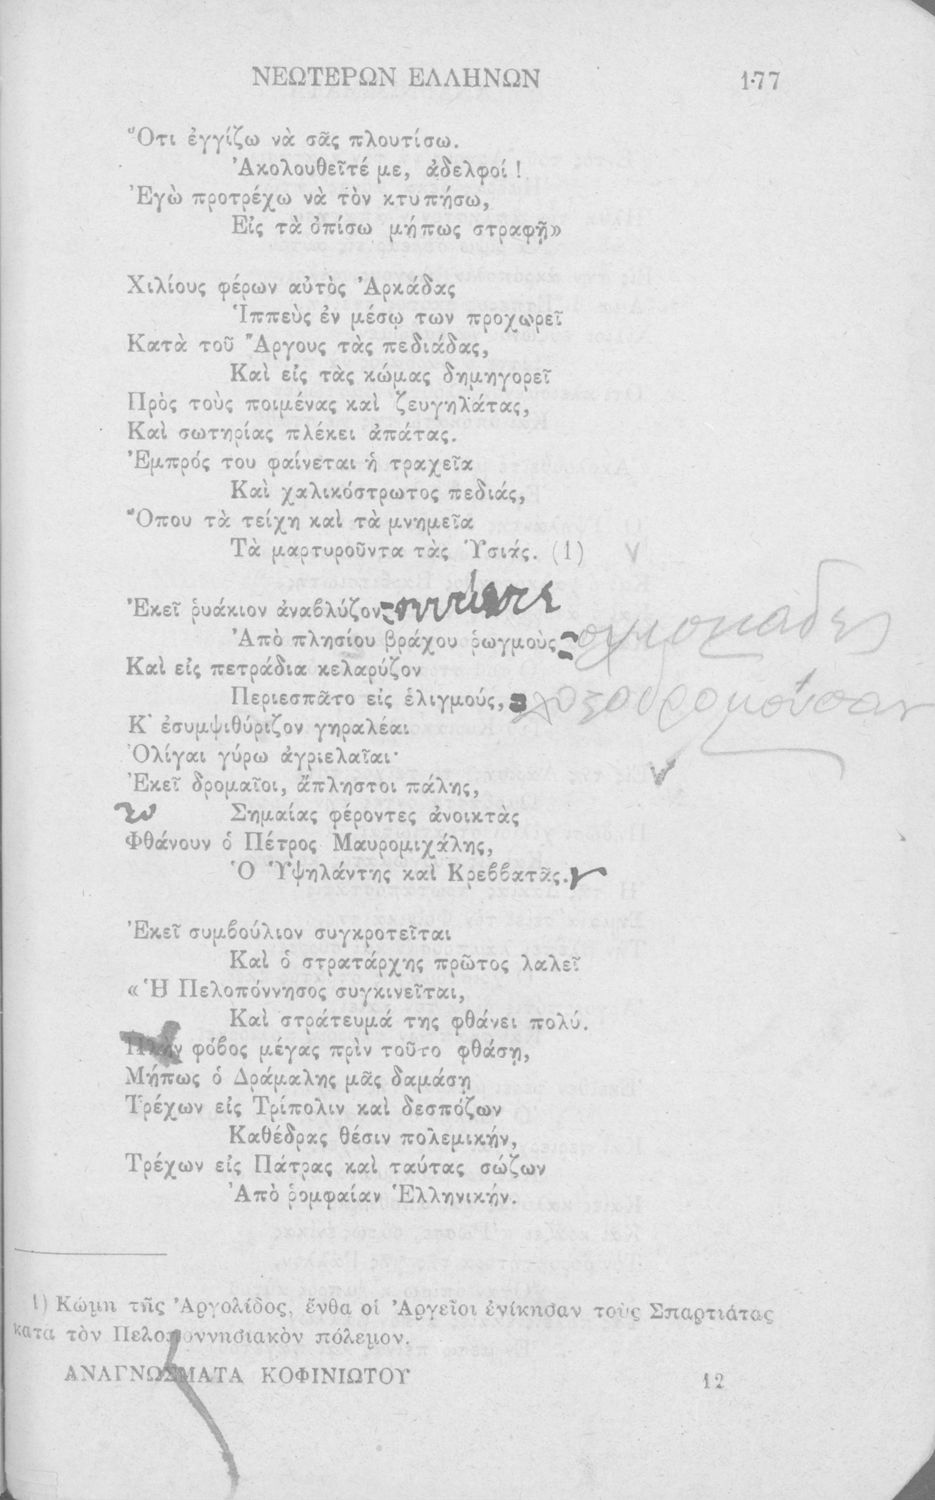 ΝΕΩΤΕΡΩΝ ΕΛΛΗΝΩΝ 177
Ὅτι ἐγγίζω νὰ σᾶς πλουτίσω.
Ἀκολουθεῖτέ με, ἀδελφοί!
Ἐγὼ προτρέχω νὰ τὸν κτυπήσω,
Εἰς τὰ ὀπίσω μήπως στραφῇ»
Χιλίους φέρων αὐτὸς Ἀρκάδας
Ἱππεὺς ἐν μέσῳ των προχωρεῖ
Κατὰ τοῦ Ἄργους τὰς πεδιάδας,
Καὶ εἰς τὰς κώμας δημηγορεῖ
Πρὸς τοὺς ποιμένας καὶ ζευγηλάτας,
Καὶ σωτηρίας πλέκει ἀπάτας.
Ἐμπρός του φαίνεται ἡ τραχεῖα
Καὶ χαλικόστρωτος πεδιάς,
Ὅπου τὰ τείχη καὶ τὰ μνημεῖα
Τὰ μαρτυροῦντα τὰς Ὑσιάς. (1)
Ἐκεῖ ῥυάκιον ἀναβλύζον
Ἀπὸ πλησίου βράχου ῥωγμοὺς
Καὶ εἰς πετράδια κελαρύζον
Περιεσπᾶτο εἰς ἑλιγμούς,
Κ' ἐσυμψιθύριζον γηραλέαι
Ὀλίγαι γύρω ἀγριελαῖαι·
Ἐκεῖ δρομαῖοι, ἄπληστοι πάλης,
Σημαίας φέροντες ἀνοικτὰς
Φθάνουν ὁ Πέτρος Μαυρομιχάλης,
Ὁ Ὑψηλάντης καὶ Κρεββατᾶς.
Ἐκεῖ συμβούλιον συγκροτεῖται
Καὶ ὁ στρατάρχης πρῶτος λαλεῖ
« Ἡ Πελοπόννησος συγκινεῖται,
Καὶ στράτευμά της φθάνει πολύ.
Πλὴν φόβος μέγας πρὶν τοῦτο φθάσῃ,
Μήπως ὁ Δράμαλης μᾶς δαμάσῃ
Τρέχων εἰς Τρίπολιν καὶ δεσπόζων
Καθέδρας θέσιν πολεμικήν,
Τρέχων εἰς Πάτρας καὶ ταύτας σώζων
Ἀπὸ ῥομφαίαν Ἑλληνικήν.
1) Κώμη τῆς Ἀργολίδος, ἔνθα οἱ Ἀργεῖοι ἐνίκησαν τοὺς Σπαρτιάτας
κατα τὸν Πελοποννησιακὸν πόλεμον.
ΑΝΑΓΝΩΣΜΑΤΑ ΚΟΦΙΝΙΩΤΟΥ 12